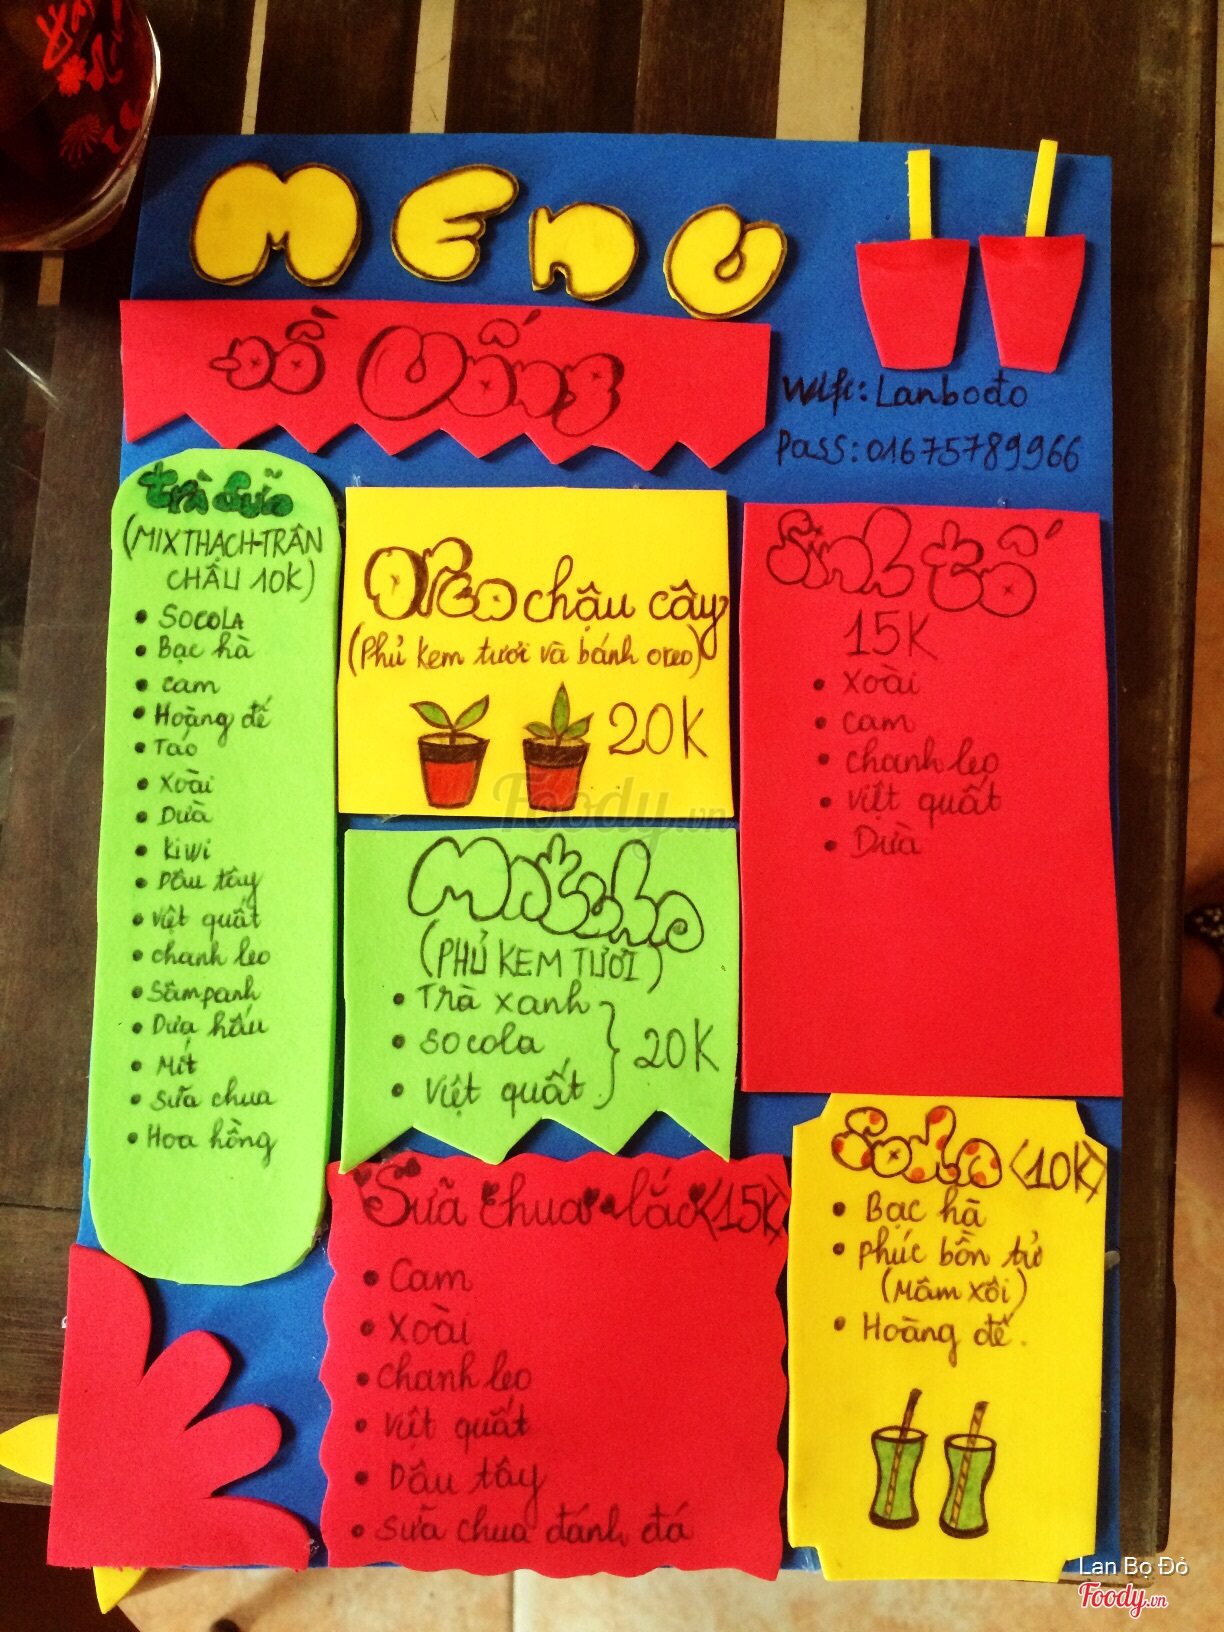 MENU
Đồ Uống
Wifi: Lanbođo
Pass: 01675789966
Trà Sữa
(MIX THẠCH-TRÂN
CHÂU 10K)
• SOCOLA
• Bạc hà
• cam
• Hoàng đế
• Táo
• Xoài
• Dưà
• Kiwi
• Dâu tây
• việt quất
• chanh leo
• Sâmpanh
• Dưa hấu
• Mít
• Sữa chua
• Hoa hồng
Oreo chậu cây
(Phủ kem tươi và bánh oreo)
20K
Matcha
(PHỦ KEM TƯƠI)
• Trà xanh
• socola
• việt quất
20K
Sinh tố
15K
• Xoài
• cam
• chanh leo
• việt quất
• Dừa
Sữa chua lắc <15K>
• Cam
• Xoài
• chanh leo
• việt quất
• Dâu tây
• sữa chua đánh đá
Soda <10K>
• Bạc hà
• phúc bồn tử
(Mâm xôi)
• Hoàng đế.
Foody.vn
Lan Bọ Đỏ
Foody.vn